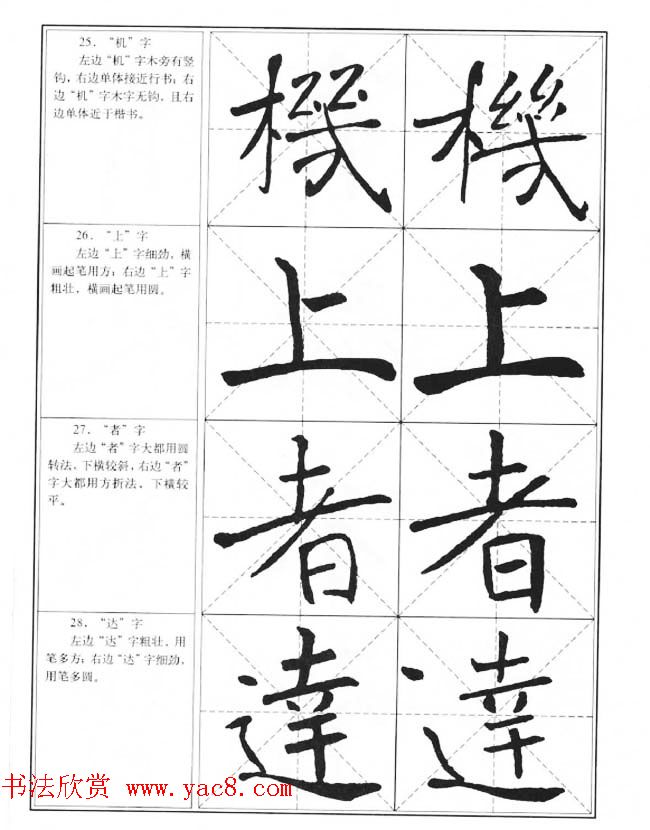 25. “机”字
左边“机”字木旁有竖
钩，右边单体接近行书；右
边“机”字木字无钩，且右
边单体近于楷书。
機 機
26. “上”字
左边“上”字细劲，横
画起笔用方；右边“上”字
粗壮，横画起笔用圆。
上 上
27. “者”字
左边“者”字大都用圆
转法，下横较斜，右边“者”
字大都用方折法，下横较
平。
者 者
28. “达”字
左边“达”字粗壮，用
笔多方；右边“达”字细劲，
用笔多圆。
達 達
书法欣赏 www.yac8.com